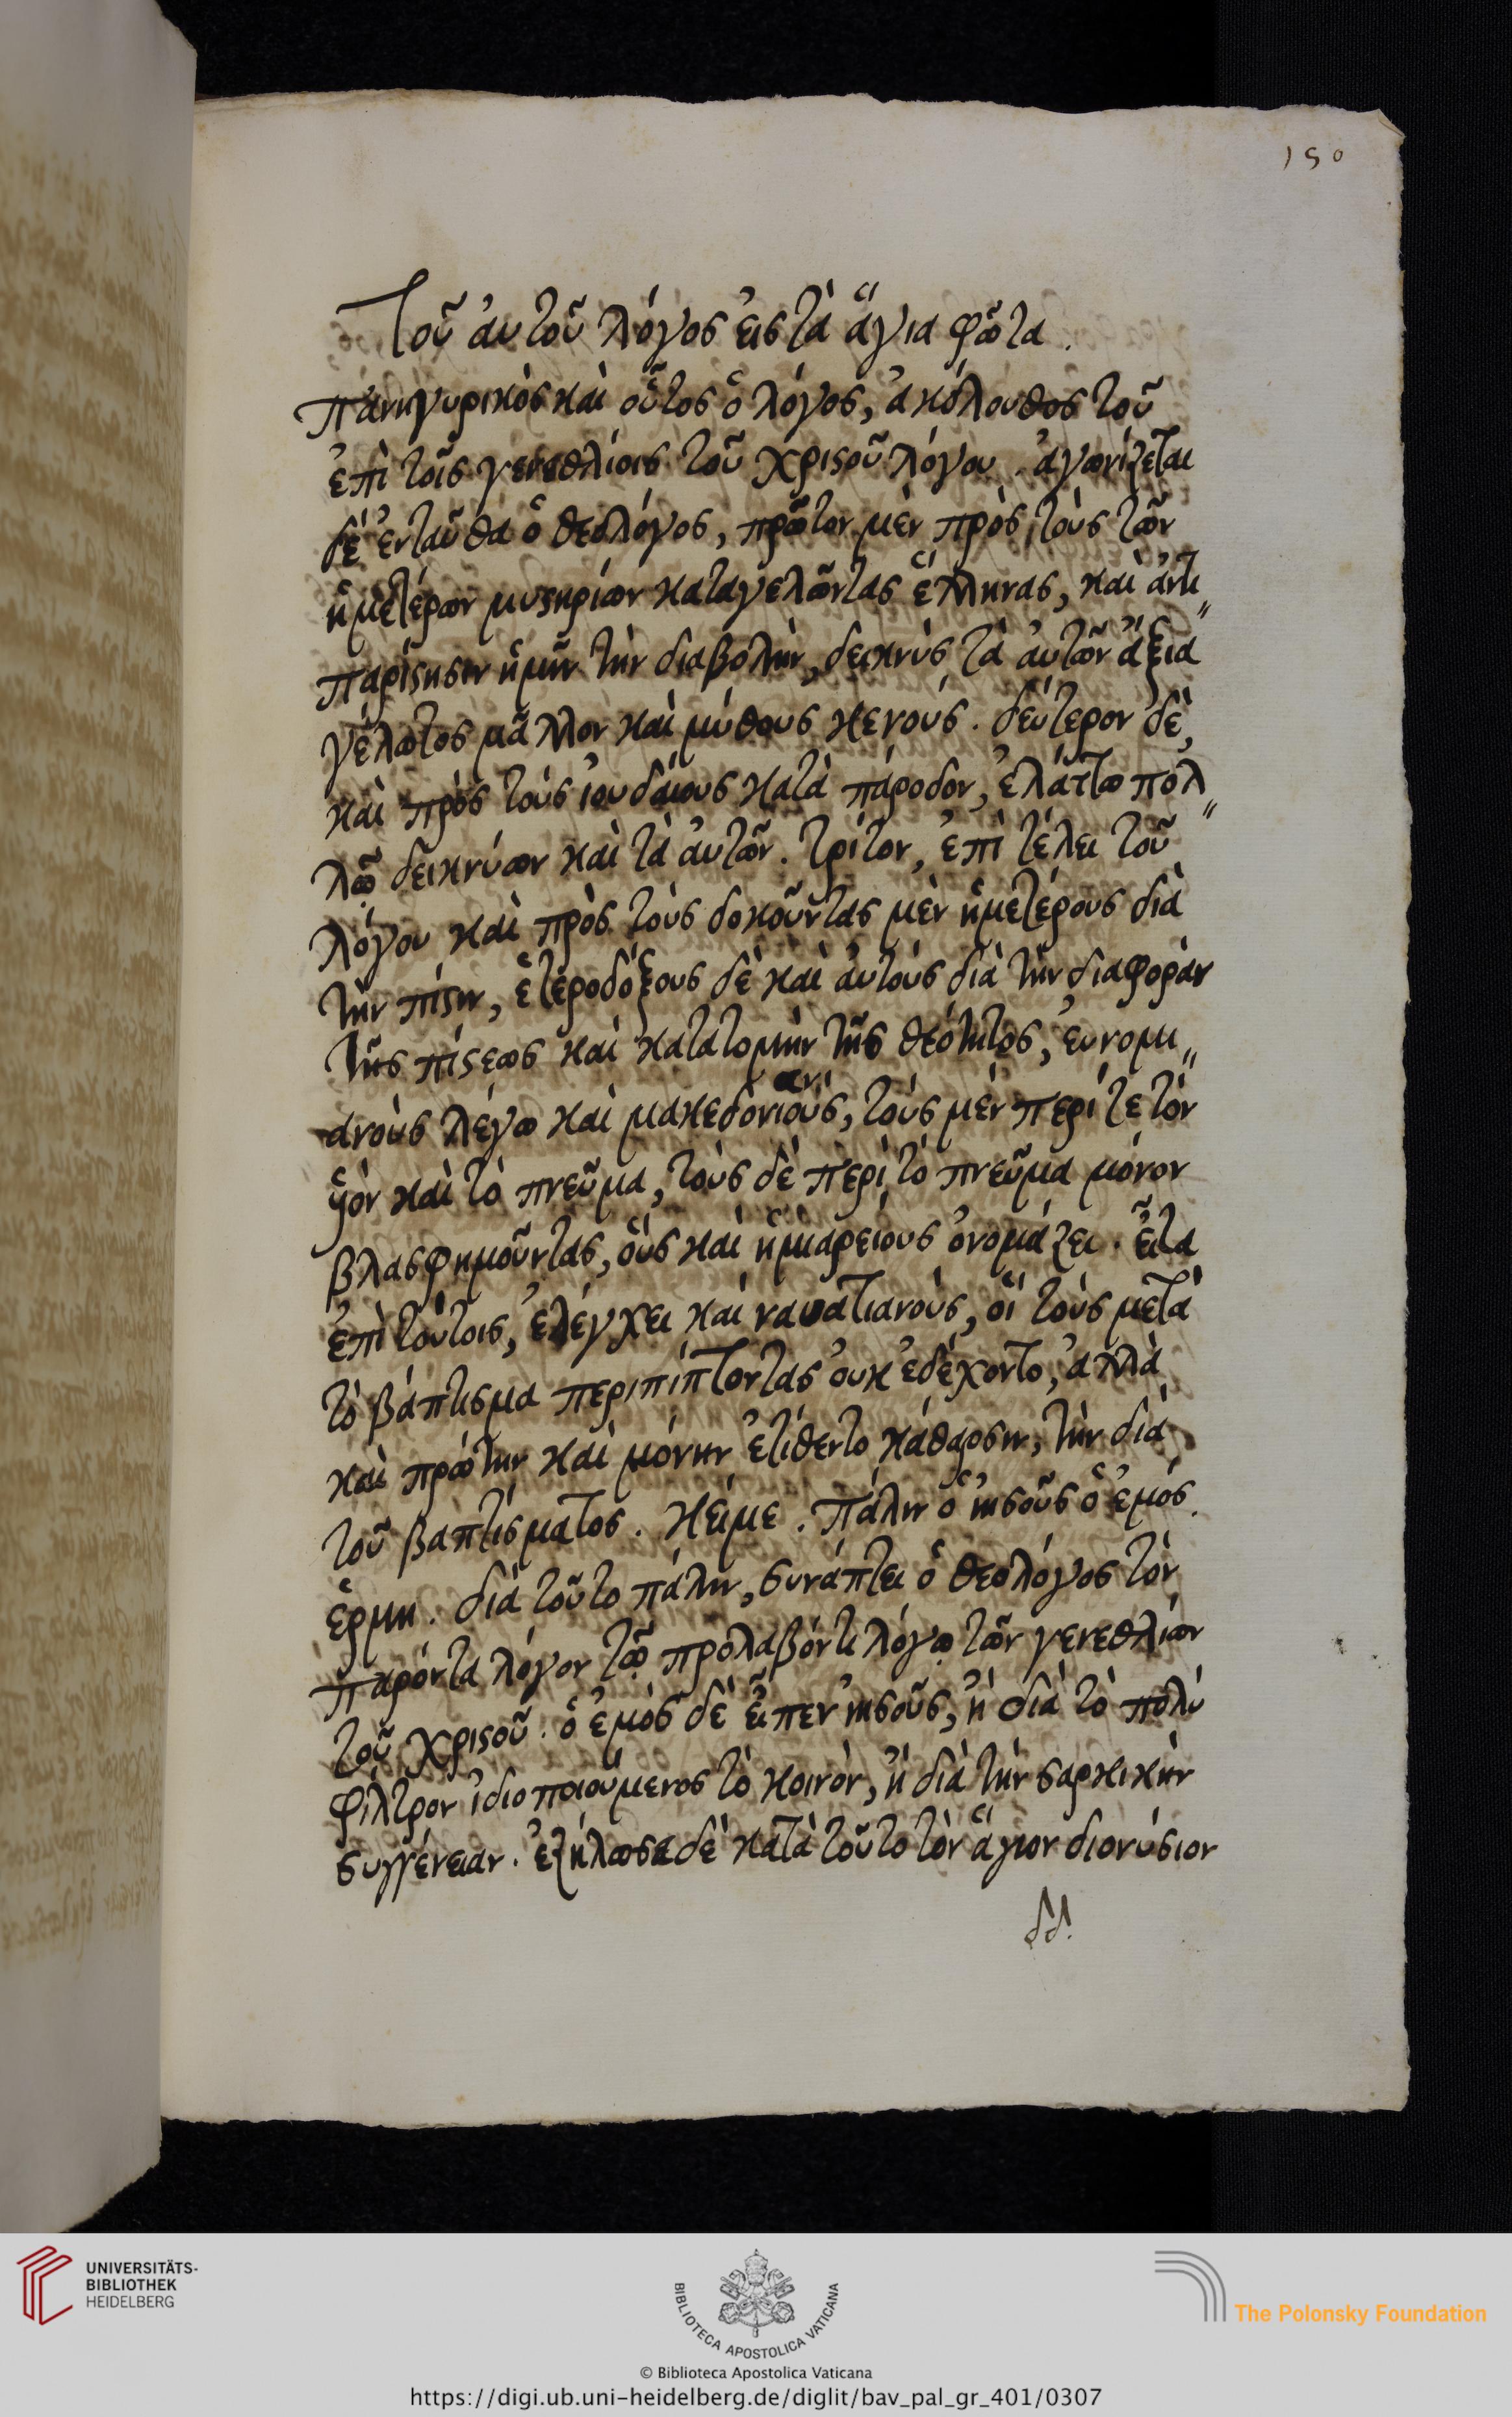 150
Τοῦ ἀυτοῦ λόγος ἐις τὰ ἅγια φῶτα.
Πανηγυρικὸς καὶ οὗτος ὁ λόγος, ἀκόλουθος τοῦ
ἐπὶ τοῖς γενεθλίοις τοῦ χριϛοῦ λόγου. ἀγωνίζεται
δὲ ἐνταῦθα ὁ θεολόγος, πρῶτον μὲν πρὸς τοὺς τῶν
ἡμετέρων μυϛηρίων καταγελῶντας ἕλληνας, καὶ ἀντι〃
παρίϛησιν ἡμῖν τὴν διαβολὴν, δεικνὺς τὰ ἀυτῶν ἄξια
γέλωτος μᾶλλον καὶ μύθους κενούς. δεύτερον δὲ,
καὶ πρὸς τοὺς ἰουδαίους κατὰ πάροδον, ἐλάττω πολ〃
λῷ δεικνύων καὶ τὰ ἀυτῶν. τρίτον, ἐπὶ τέλει τοῦ
λόγου καὶ πρὸς τοὺς δοκοῦντας μὲν ἡμετέρους διὰ
τὴν πίϛιν, ἑτεροδόξους δὲ καὶ ἀυτοὺς διὰ τὴν διαφορὰν
τῆς πίϛεως καὶ κατατομὴν τῆς θεότητος, ἐυνομι〃
ανοὺς λέγω καὶ μακεδονιανούς, τοὺς μὲν περί τε τὸν
ὑιὸν καὶ τὸ πνεῦμα, τοὺς δὲ περὶ τὸ πνεῦμα μόνον
βλασφημοῦντας, οὓς καὶ ἡμιαρείους ὀνομάζει. ἐῖτα
ἐπὶ τούτοις, ἐλέγχει καὶ ναυατιανοὺς, οἳ τοὺς μετὰ
τὸ βάπτισμα περιπίπτοντας οὐκ ἐδέχοντο, ἀλλὰ
καὶ πρώτην καὶ μόνην ἐτίθεντο κάθαρσιν, τὴν διὰ
τοῦ βαπτίσματος. Κείμε. Πάλιν ὁ ἰησοῦς ὁ ἐμός.
ἑρμη. διὰ τοῦτο πάλιν, συνάπτει ὁ θεολόγος τὸν
παρόντα λόγον τῷ προλαβόντι λόγῳ τῶν γενεθλίων
τοῦ χριϛοῦ. ὁ ἐμὸς δὲ ἐῖπεν ἰησοῦς, ἢ διὰ τὸ πολὺ
φίλτρον ἰδιοποιούμενος τὸ κοινὸν, ἢ διὰ τὴν σαρκικὴν
συγγένειαν. ἐζήλωσε δὲ κατὰ τοῦτο τὸν ἅγιον διονύσιον
UNIVERSITÄTS-
BIBLIOTHEK
HEIDELBERG
BIBLIOTECA APOSTOLICA VATICANA
The Polonsky Foundation
© Biblioteca Apostolica Vaticana
https://digi.ub.uni-heidelberg.de/diglit/bav_pal_gr_401/0307